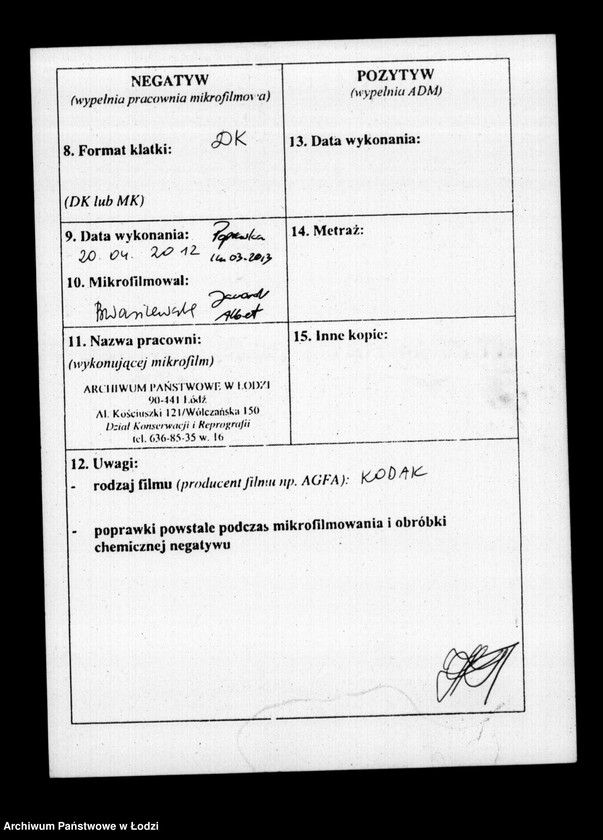 NEGATYW
(wypełnia pracownia mikrofilmowa)
8. Format klatki: DK
(DK lub MK)
9. Data wykonania: Poprawka
20. 04. 2012 14.03.2013
10. Mikrofilmował:
11. Nazwa pracowni:
(wykonującej mikrofilm)
ARCHIWUM PAŃSTWOWE W ŁODZI
90-441 Łódź
Al. Kościuszki 121/Wólczańska 150
Dział Konserwacji i Reprografii
tel. 636-85-35 w. 16
POZYTYW
(wypełnia ADM)
13. Data wykonania:
14. Metraż:
15. Inne kopie:
12. Uwagi:
- rodzaj filmu (producent filmu np. AGFA): KODAK
- poprawki powstałe podczas mikrofilmowania i obróbki
chemicznej negatywu
Archiwum Państwowe w Łodzi